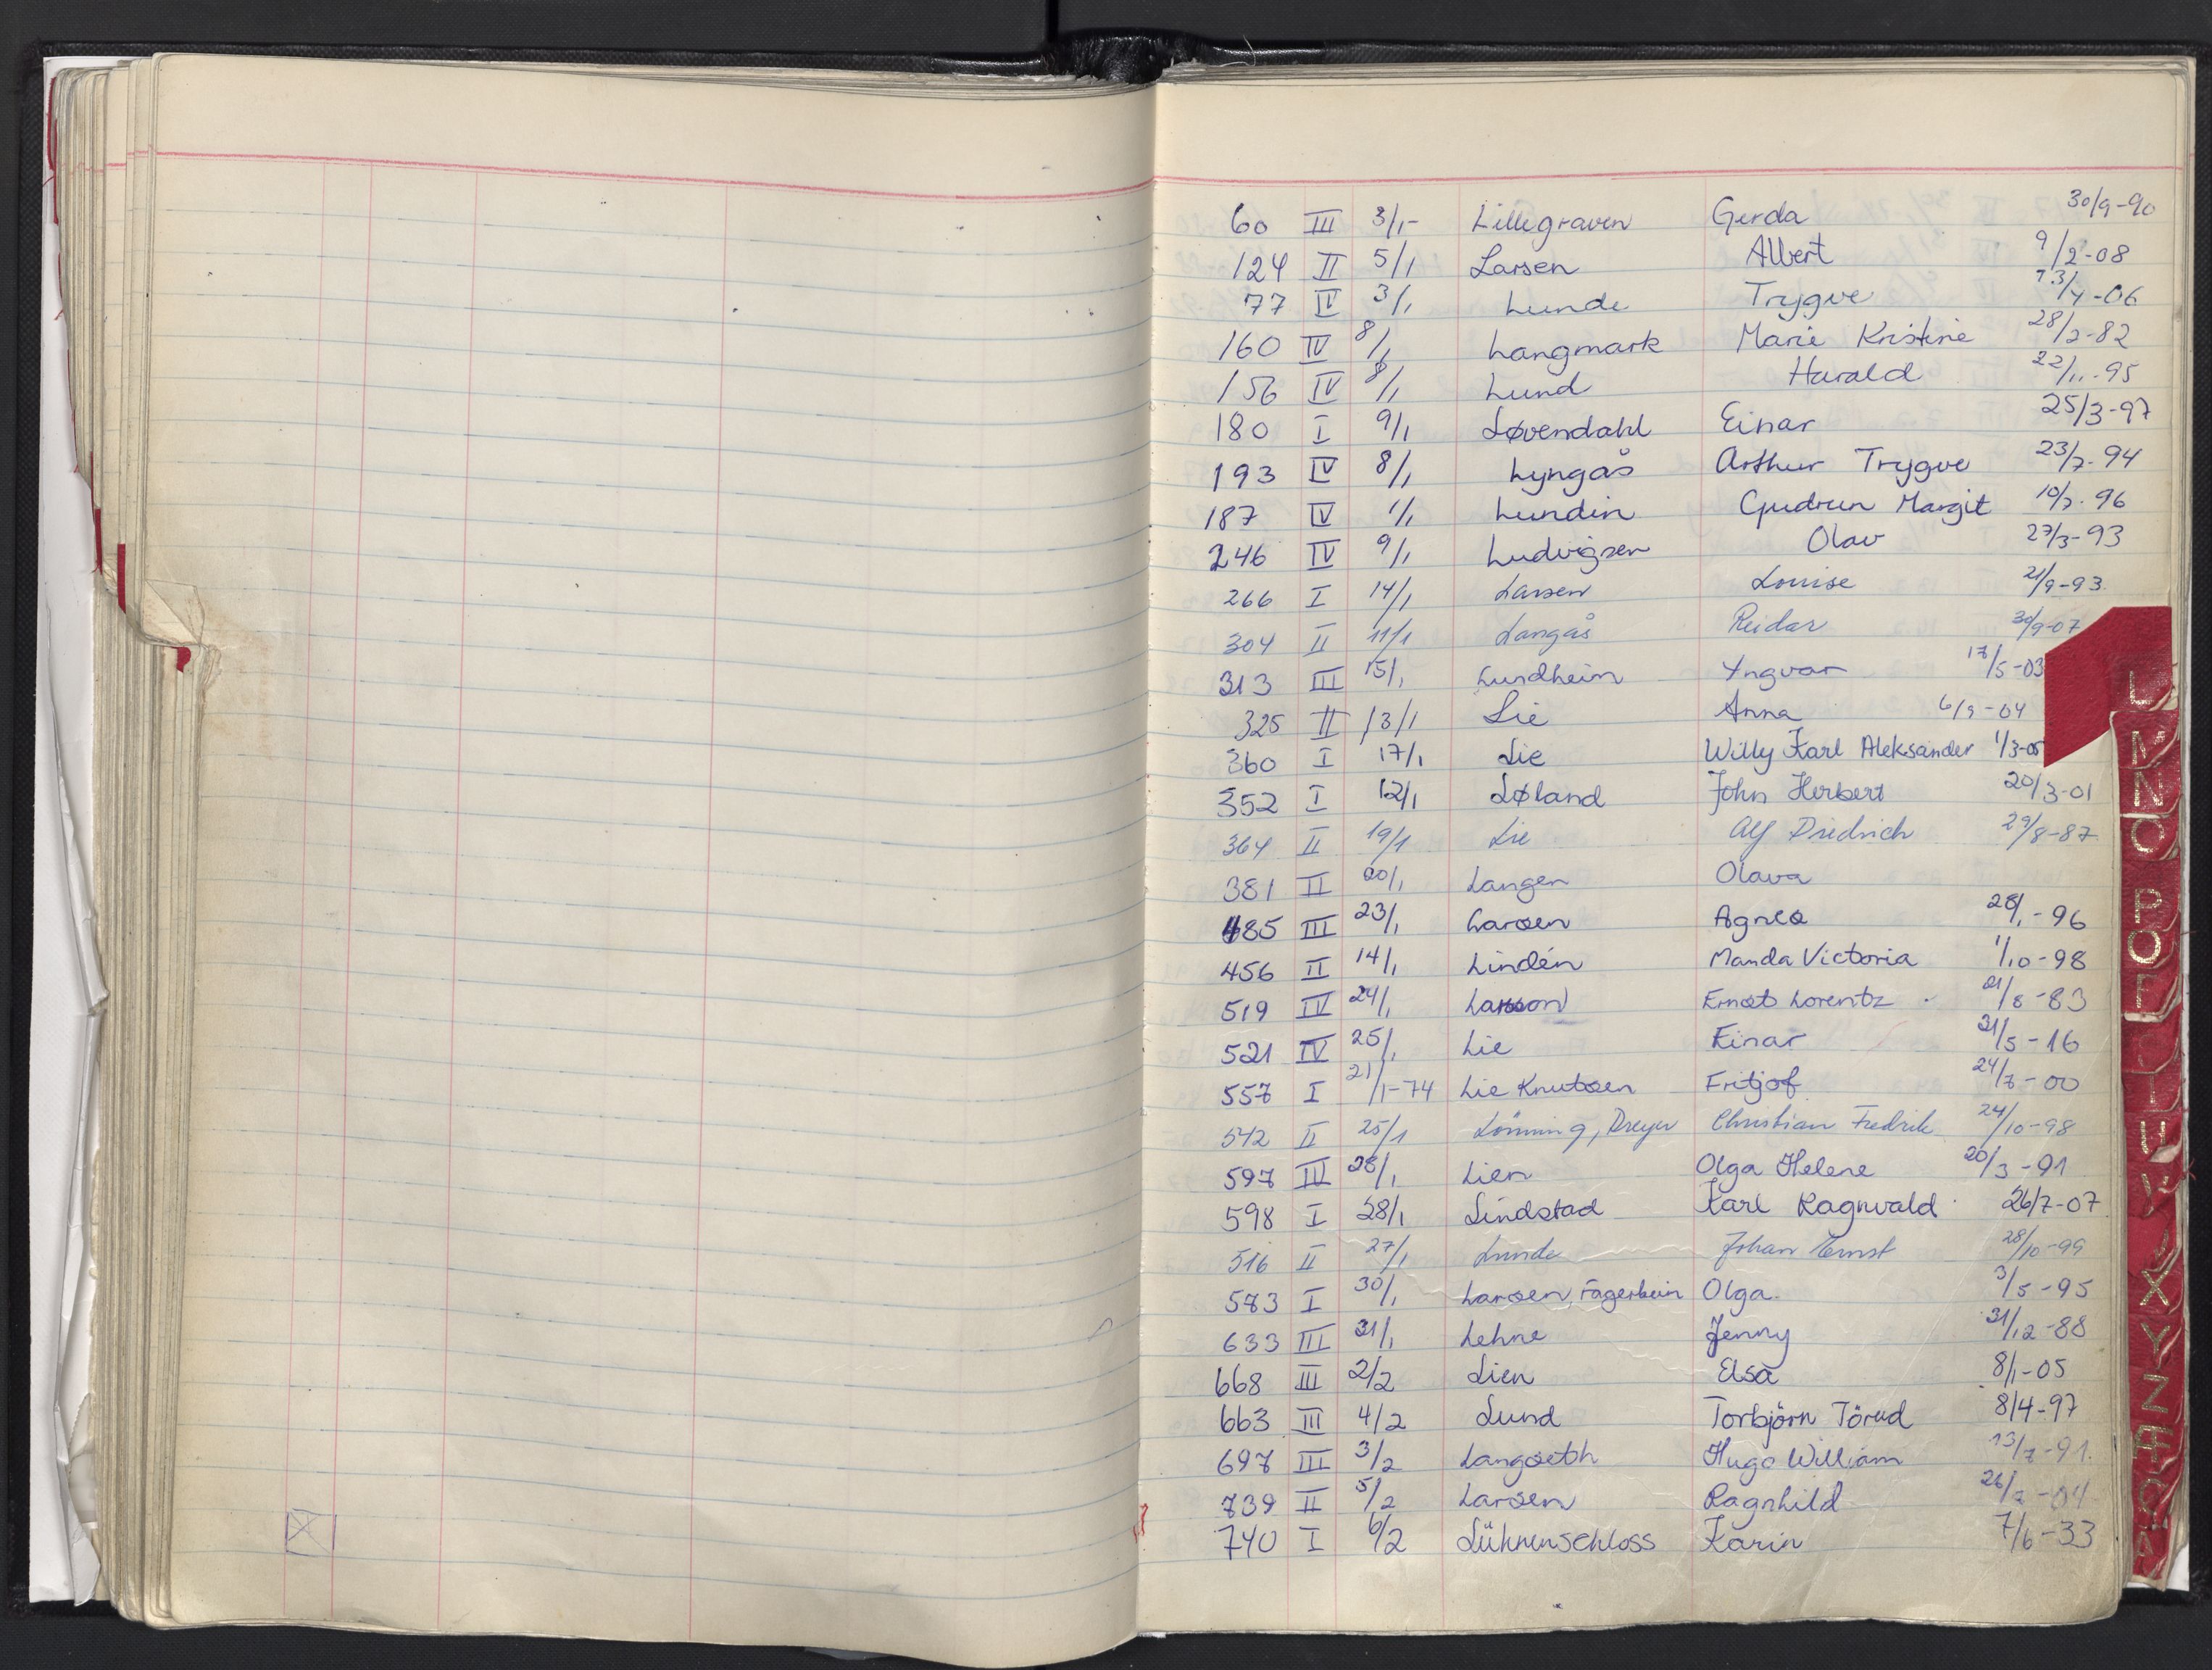 60 III 3/1- Lillegraven Gerda 30/9-90
124 II 5/1 Larsen Albert 9/2-08
77 IV 3/1 Lunde Trygve 13/4-06
160 IV 8/1 Langmark Marie Kristine 28/2-82
156 IV 8/1 Lund Harald 22/11-95
180 I 9/1 Løvendahl Einar 25/3-97
193 IV 8/1 Lyngås Arthur Trygve 23/7-94
187 IV 1/1 Lundin Gudrun Margit 10/7-96
246 IV 9/1 Ludvigsen Olav 27/3-93
266 I 14/1 Larsen Louise 21/9-93
304 II 11/1 Langås Reidar 30/9-07
313 III 15/1 Lundheim Yngvar 18/5-03
325 II 13/1 Lie Anna 6/9-04
360 I 17/1 Lie Willy Karl Aleksander 1/3-05
352 I 12/1 Løland John Herbert 20/3-01
364 II 19/1 Lie Alf Diedrich 29/8-87
381 II 20/1 Langen Olava
485 III 23/1 Larsen Agnes 28/1-96
456 II 14/1 Lindén Manda Victoria 1/10-98
519 IV 24/1 Larsson Ernst Lorentz 21/8-83
521 IV 25/1 Lie Einar 31/5-16
557 I 21/1-74 Lie Knutsen Fritjof 24/7-00
542 II 25/1 Lönning, Dreyer Christian Fredrik 24/10-98
597 III 28/1 Lien Olga Helene 20/3-91
598 I 28/1 Lindstad Karl Ragnvald 26/7-07
516 II 27/1 Lunde Johan Ernst 28/10-99
573 I 30/1 Larsen, Fagerheim Olga. 3/5-95
633 III 31/1 Lehne Jenny 31/12-88
668 III 2/2 Lien Elsa 8/1-05
663 III 4/2 Lund Torbjörn Törud 8/4-97
697 III 3/2 Langseth Hugo William 13/7-91.
739 II 5/2 Larsen Ragnhild 26/2-04
740 I 6/2 Lühnenschloss Karin 7/6-33
L
M
N
O
P
Q
R
T
U
V
X
Y
Z
Æ
Ø